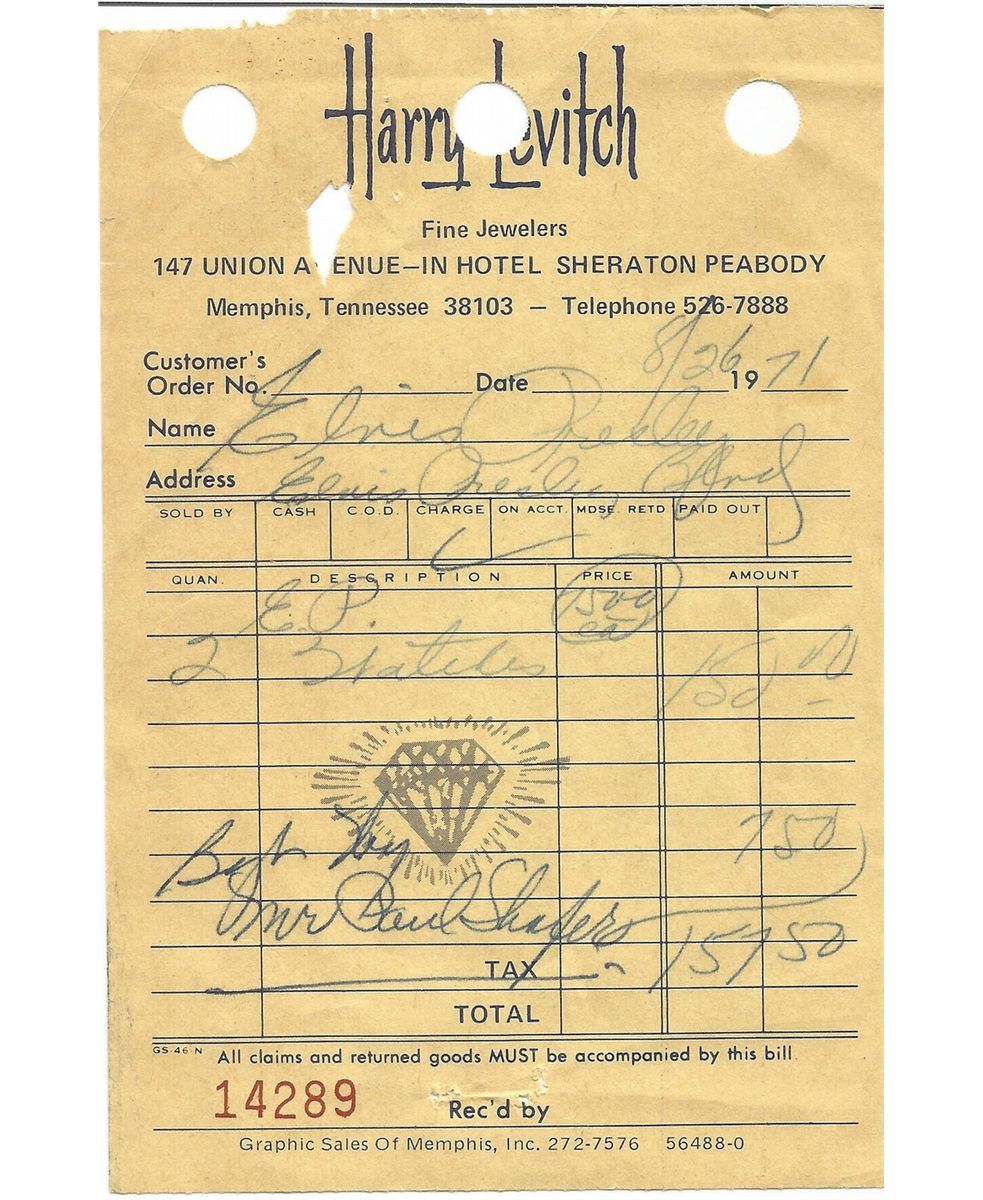 Harry Levitch
Fine Jewelers
147 UNION A ENUE—IN HOTEL SHERATON PEABODY
Memphis, Tennessee 38103 — Telephone 526-7888
Customer's
Order No. Date 8/26 1971
Name Elvis Presley
Address Elvis Presley Blvd
SOLD BY CASH C.O.D. CHARGE ON ACCT. MDSE. RETD PAID OUT
QUAN. DESCRIPTION PRICE AMOUNT
E.P. 7500
ea
2 Watches 150 00
Bot by 750
Mr Paul Shafers 157 50
TAX
TOTAL
GS-46-N All claims and returned goods MUST be accompanied by this bill.
14289 Rec'd by
Graphic Sales Of Memphis, Inc. 272-7576 56488-0